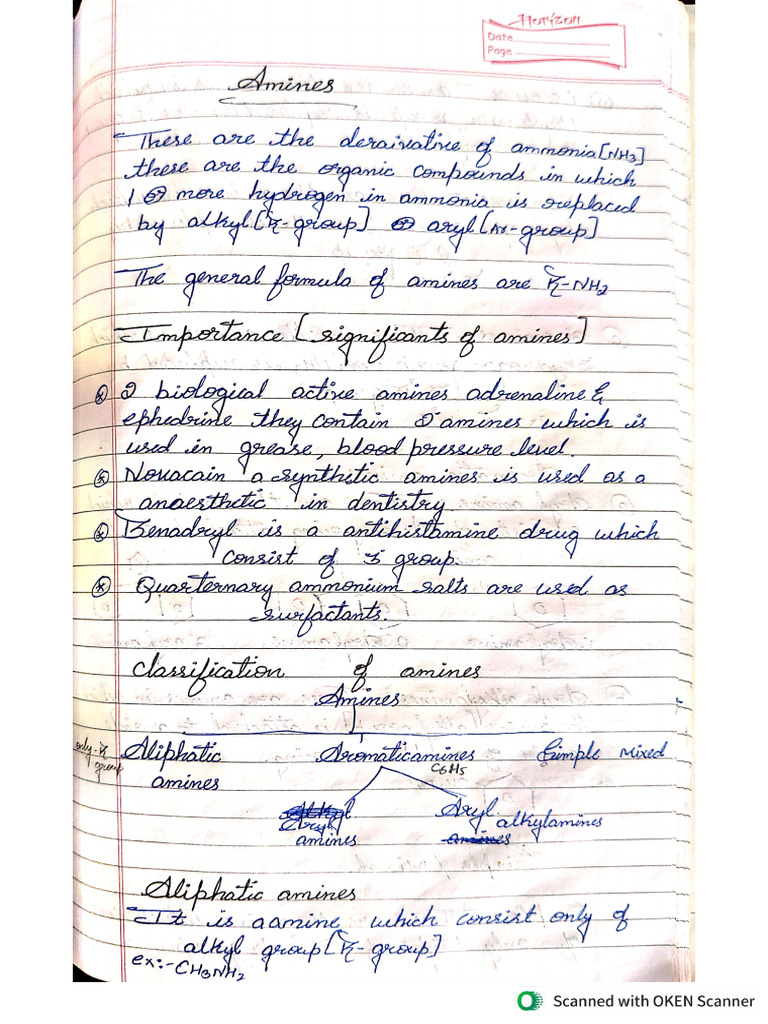 Horizon
Date
Page
Amines
These are the deraivative of ammonia [NH3]
these are the organic compounds in which
1 or more hydrogen in ammonia is replaced
by alkyl [R-group] or aryl [Ar-group]
The general formula of amines are R-NH2
Importance [significants of amines]
2 biological active amines adrenaline &
ephedrine they contain 2° amines which is
used in grease, blood pressure level.
Novacain a synthetic amines is used as a
anaesthetic in dentistry
Benadryl is a antihistamine drug which
consist of 3° group.
Quarternary ammonium salts are used as
surfactants.
Classification of amines
Amines
only-R group
Aliphatic amines
Aromatic amines
C6H5
Simple Mixed
Aryl amines
Aryl alkylamines
Aliphatic amines
It is a amine which consist only of
alkyl group [R-group]
ex:- CH3NH2
Scanned with OKEN Scanner